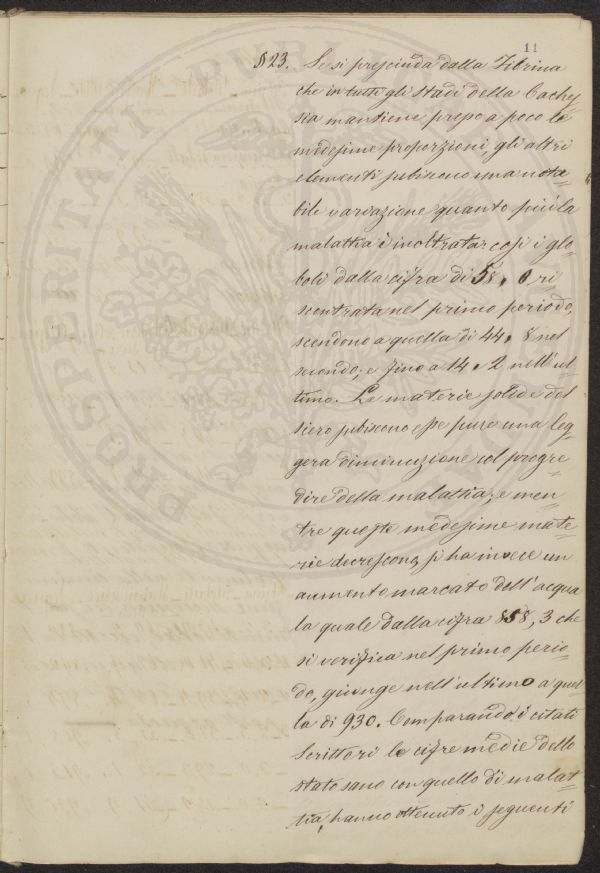 11
§ 23. Se si prescinda dalla Fibrina
che in tutti gli stadi della Cache=
sia mantiene presso a poco le
medesime proporzioni, gli altri
elementi subiscono una nota=
bile variazione quanto più la
malattia è inoltrata; così i glo=
boli dalla cifra di 58, 0 ri=
scontrata nel primo periodo,
scendono a quella di 44. 8 nel
secondo; e fino a 14. 2 nell'ul=
timo. Le materie solide del
siero subiscono esse pure una leg=
gera diminuzione col progre=
dire della malattia; e men=
tre queste medesime mate=
rie decrescono, si ha invece un
aumento marcato dell'acqua
la quale dalla cifra 858, 3 che
si verifica nel primo perio=
do, giunge nell'ultimo a quel=
la di 930. Comparando i citati
Scrittori le cifre medie dello
stato sano con quello di malat=
tia, hanno ottenuto i seguenti
PROSPERITATI PUBLICAE